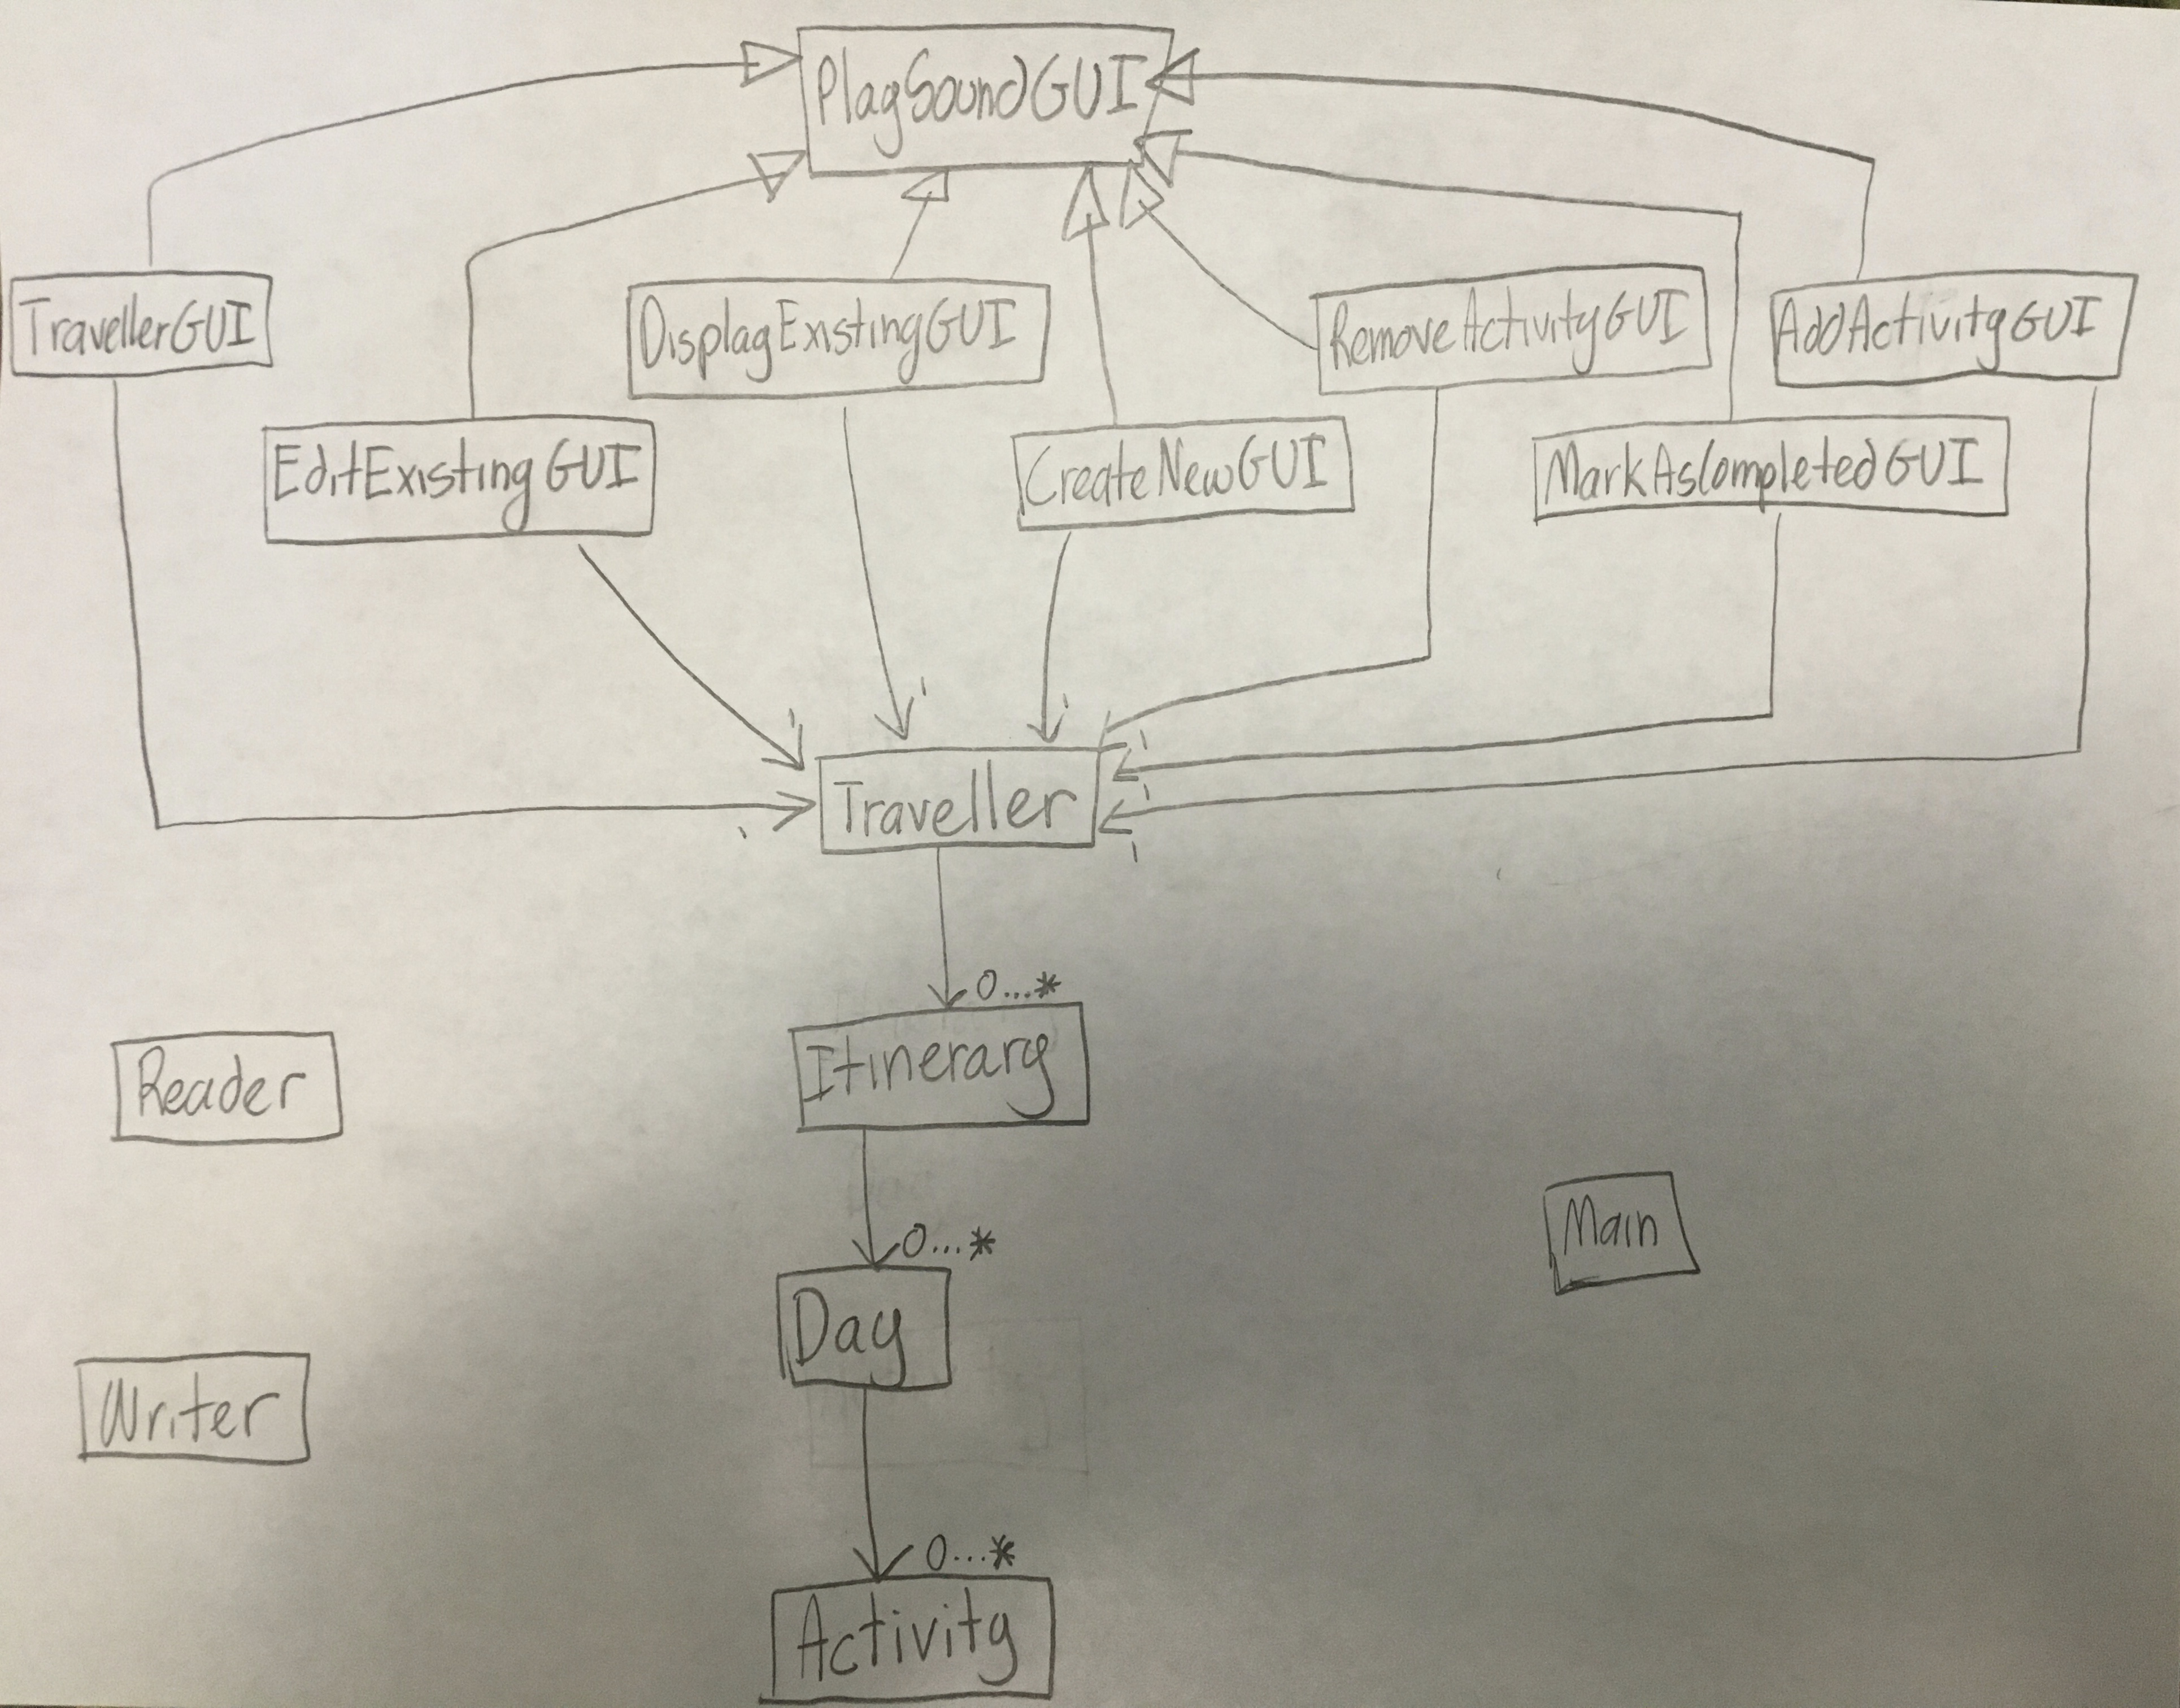 PlaySoundGUI
TravellerGUI
DisplayExistingGUI
RemoveActivityGUI
AddActivityGUI
EditExistingGUI
CreateNewGUI
MarkAsCompletedGUI
1
1
1
1
1
Traveller
1
1
0...*
Itinerary
Reader
Main
0...*
Day
Writer
0...*
Activity